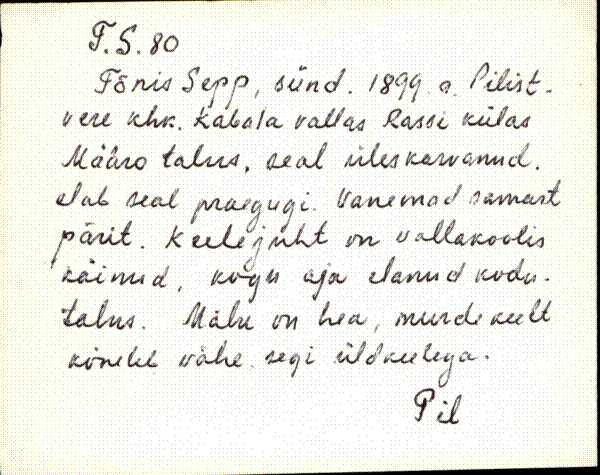 T.S. 80
Tõnis Sepp, sünd. 1899. a. Pilist-
vere khk. Kabala vallas Rassi külas
Määro talus, seal üleskasvanud.
elab seal praegugi. Vanemad samast
pärit. Keelejuht on vallakoolis
käinud, kogu aja elanud kodu-
talus. Mälu on hea, murdekeelt
kõneleb vähe segi üldkeelega.
Pil